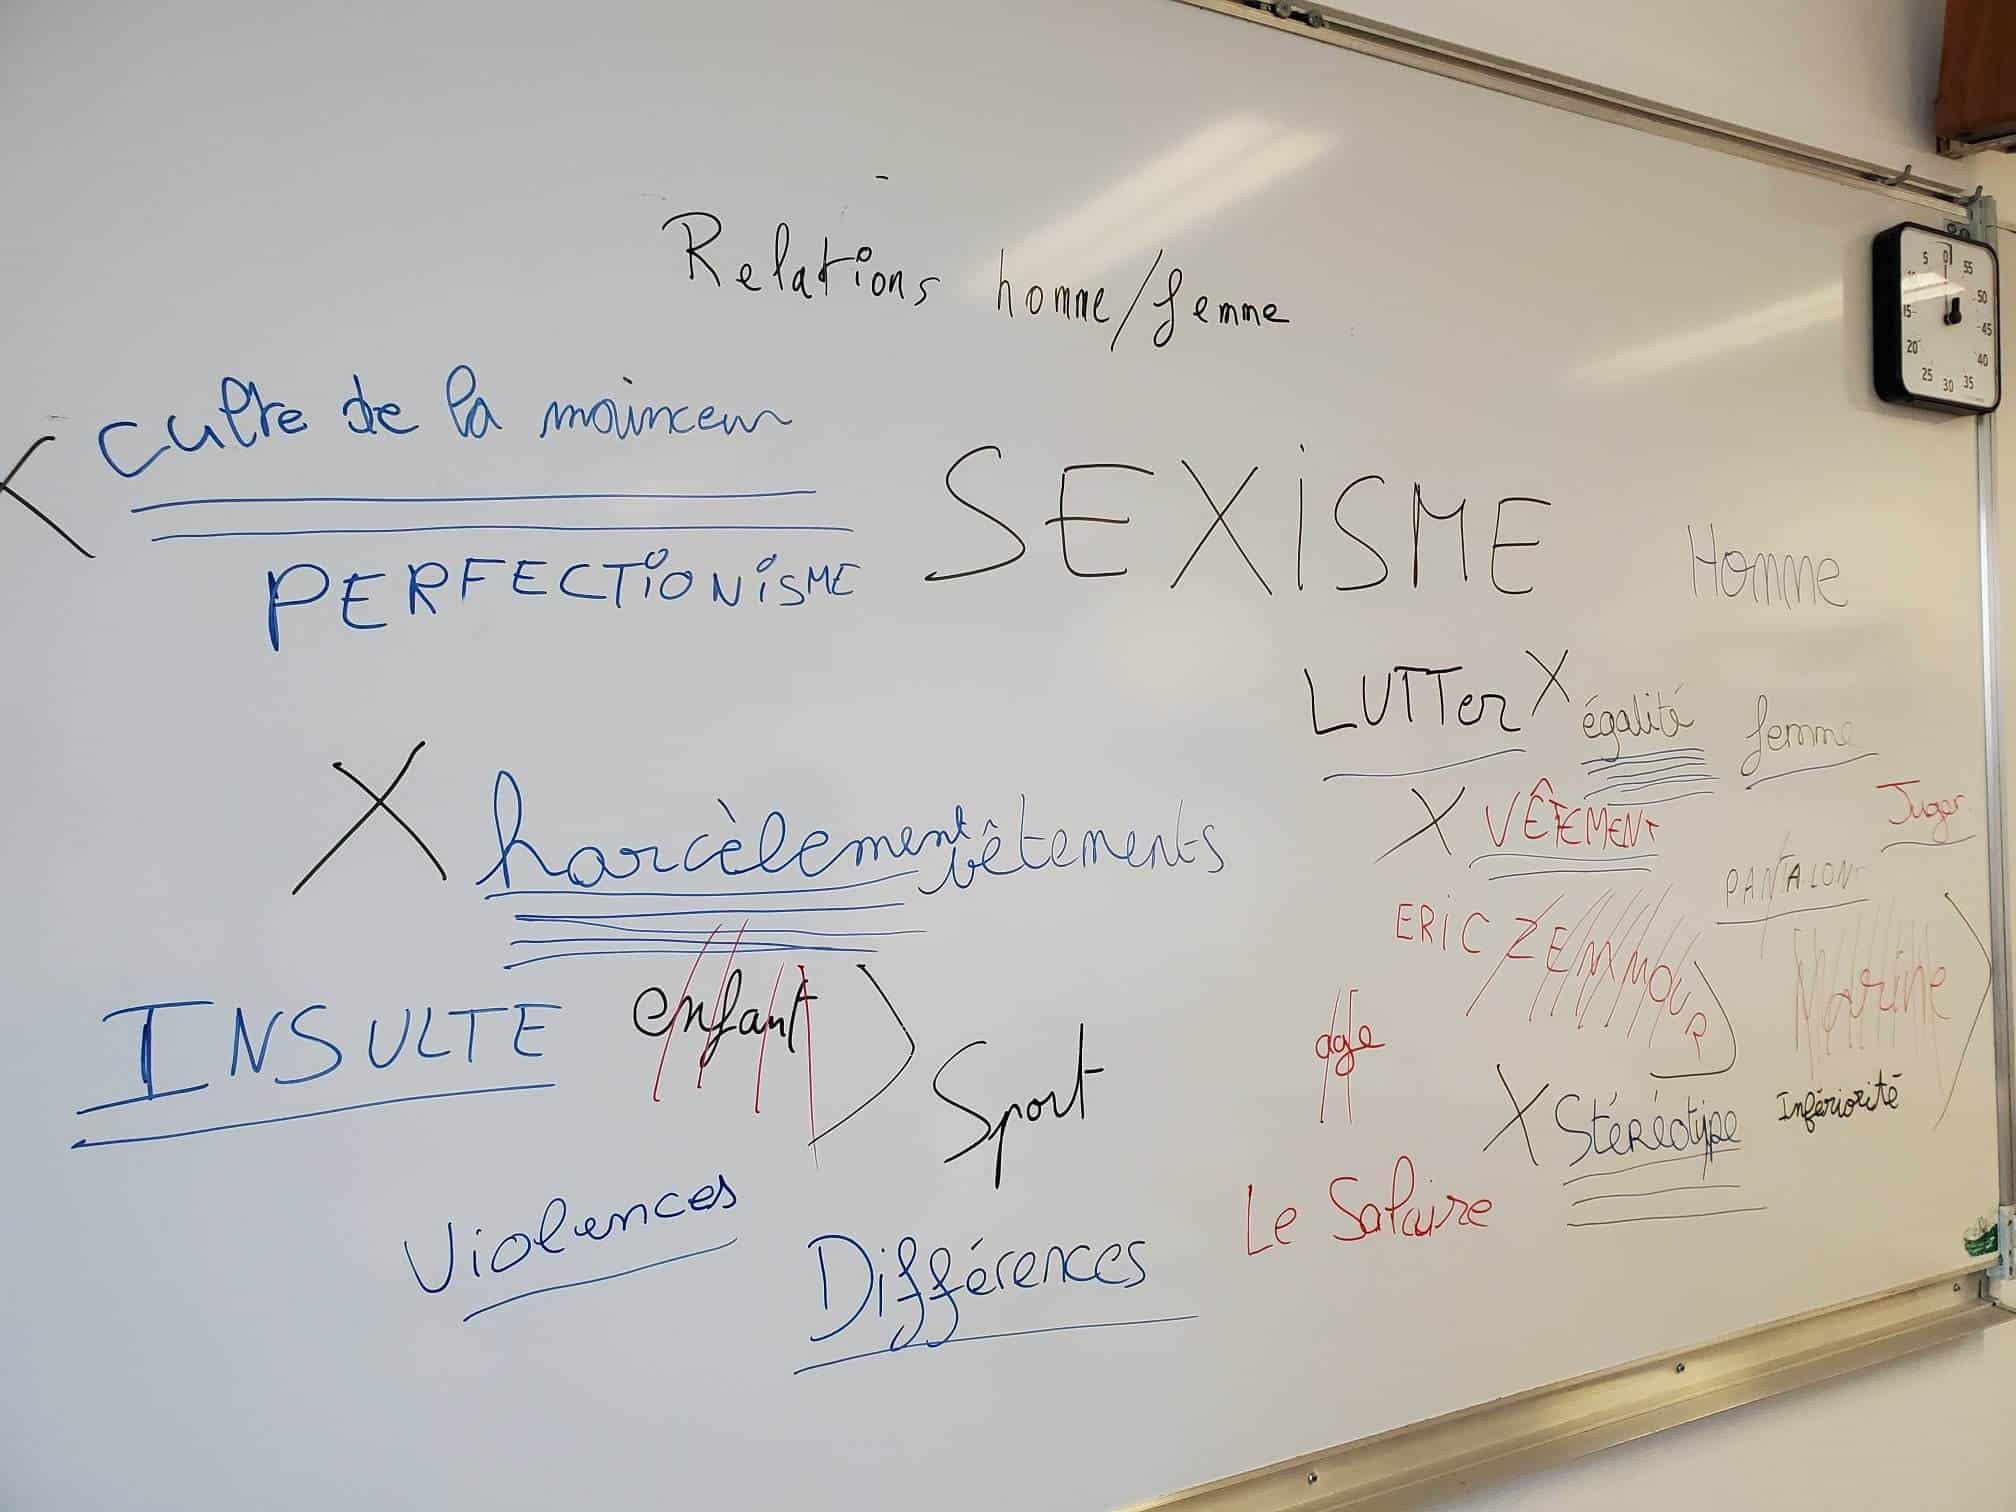 Relations homme/femme
X culte de la minceur
PERFECTIONISME
SEXISME
Homme
LUTTer X égalité femme
X harcèlement vêtements
X VÊTEMENT
Juger
PANTALON
ERIC ZEMMOUR
Marine
INSULTE enfant
Sport
age
X Stéréotype Infériorité
Violences
Différences
Le Salaire
5 0 55
10 50
15 45
20 40
25 30 35